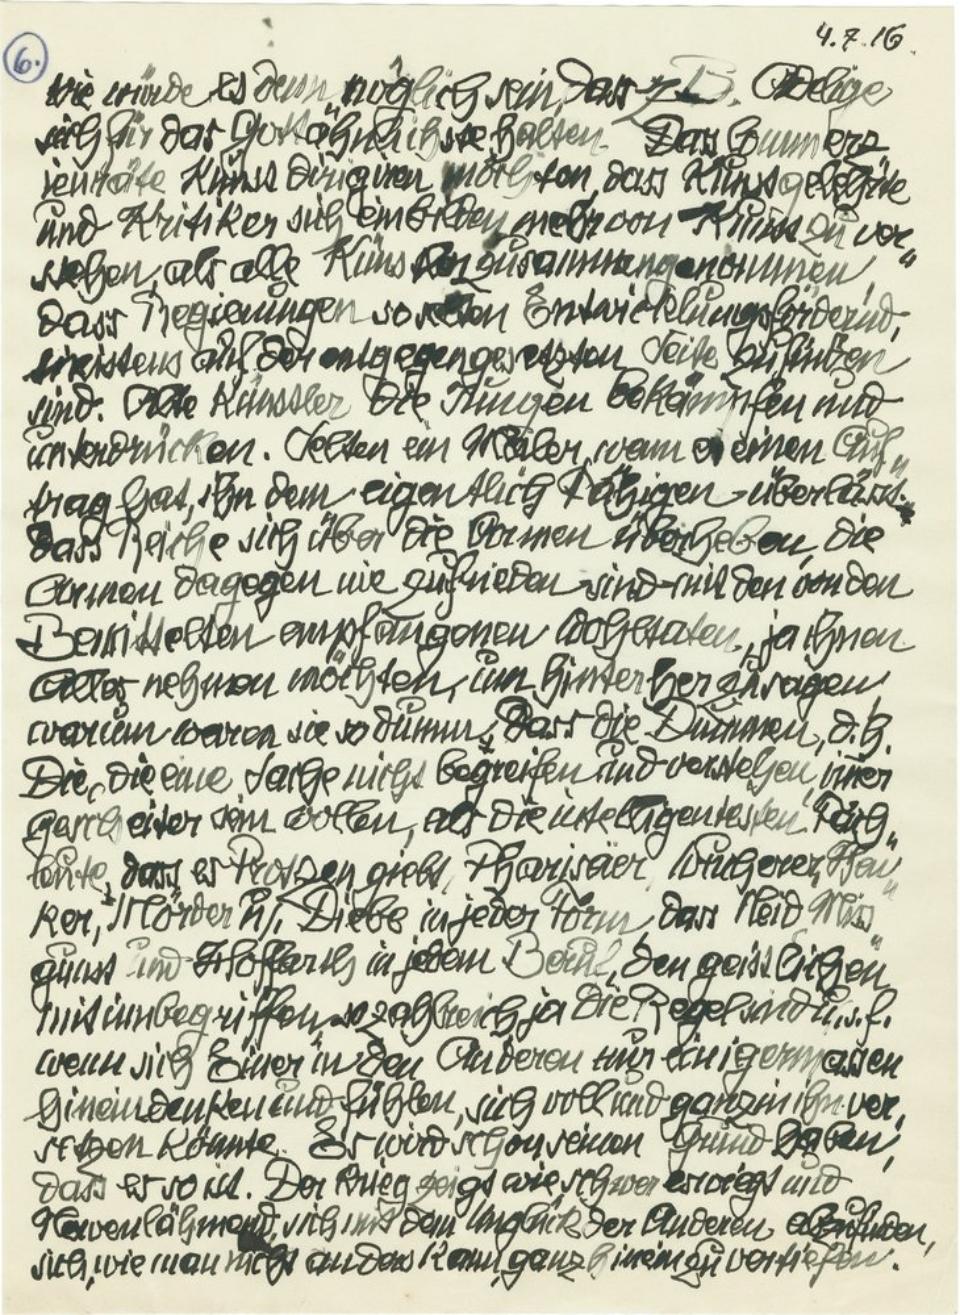 6.
4.7.16.
wie würde es denn möglich sein, dass z B. Adelige
sich für das Gottähnlichste halten. Dass Commerz
ienräte Kunst dirigiren möchten, dass Kunstgelehrte
und Kritiker sich einbilden mehr von Kunst zu ver„
stehen, als alle Künstler zusammengenommen,
dass Regierungen so selten Entwicklungsfördernd,
meistens auf der entgegengesetzten Seite zu finden
sind. Alte Künstler die Jungen bekämpfen und
unterdrücken. Selten ein Maler, wenn er einen Auf„
trag hat, ihn dem eigentlich Fähigen überlässt.
dass Reiche sich über die Armen überheben, die
Armen dagegen nie zufrieden sind mit den von den
Bemittelten empfangenen Wohltaten, ja ihnen
Alles nehmen möchten, um hinterher zu sagen
warum waren sie so dumm, Dass die Dummen, d.h.
Die, die eine Sache nicht begreifen und verstehen, imer
gescheiter sein wollen, als die intelligentesten Fach„
leute, dass es Protzen giebt, Pharisäer, Wucherer,
ker, Mörder u, Diebe in jeder Form, dass Neid Miss
gunst und Hoffarth in jedem Beruf, den geistlichen
mitinbegriffen, so zahlreich ja die Regel sind u.s.f.
wenn sich Einer in den Anderen nur einigermassen
hineindenken und fühlen, sich voll und ganz in ihn ver„
setzen könnte. Es wird schon seinen Grund haben,
dass es so ist. Der Krieg zeigt wie schwer es wiegt und
Nervenlähmend, sich mit dem Unglück der Anderen abzufinden,
sich, wie man nicht anders kann, ganz hinein zu vertiefen.